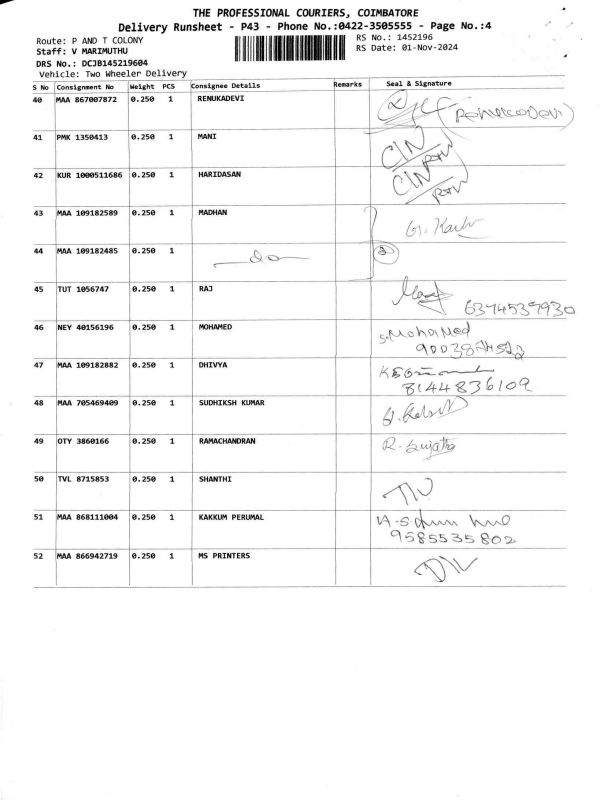 THE PROFESSIONAL COURIERS, COIMBATORE
Delivery Runsheet - P43 - Phone No.:0422-3505555 - Page No.:4
Route: P AND T COLONY
RS No.: 1452196
Staff: V MARIMUTHU
RS Date: 01-Nov-2024
DRS No.: DCJB145219604
Vehicle: Two Wheeler Delivery
S No Consignment No Weight PCS Consignee Details Remarks Seal & Signature
40 MAA 867007872 0.250 1 RENUKADEVI (RENUKADEVI)
41 PMK 1350413 0.250 1 MANI
42 KUR 1000511686 0.250 1 HARIDASAN
43 MAA 109182589 0.250 1 MADHAN
44 MAA 109182485 0.250 1 do 2
45 TUT 1056747 0.250 1 RAJ 6374537930
46 NEY 40156196 0.250 1 MOHAMED S.MOHAMED
47 MAA 109182882 0.250 1 DHIVYA
8144836109
48 MAA 705469409 0.250 1 SUDHIKSH KUMAR
49 OTY 3860166 0.250 1 RAMACHANDRAN R. Sujatha
50 TVL 8715853 0.250 1 SHANTHI
51 MAA 868111004 0.250 1 KAKKUM PERUMAL
9585535802
52 MAA 866942719 0.250 1 MS PRINTERS